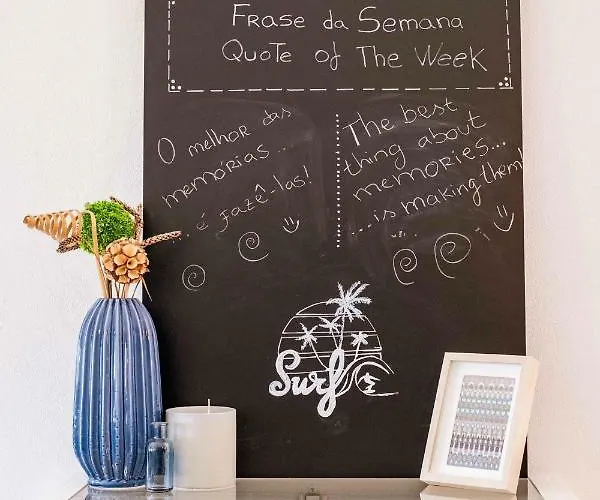 Frase da Semana
Quote of The Week
O melhor das
memórias...
é fazê-las!
The best
thing about
memories...
...is making them!
Surf